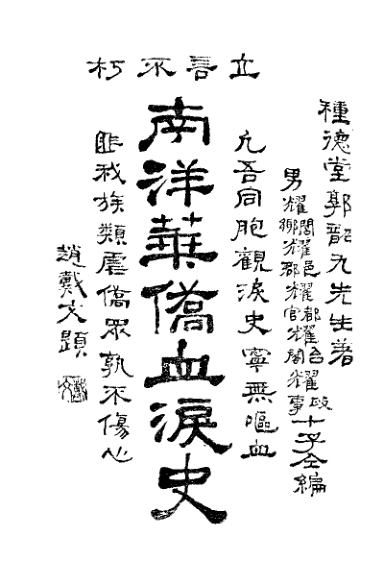 立言不朽
種德堂郭韶九先生著
男耀閭鄉耀邑郡耀都官耀台閣耀政事十子仝編
凡吾同胞觀淚史寧無嘔血
南洋華僑血淚史
匪我族類虐僑眾孰不傷心
趙戴文題